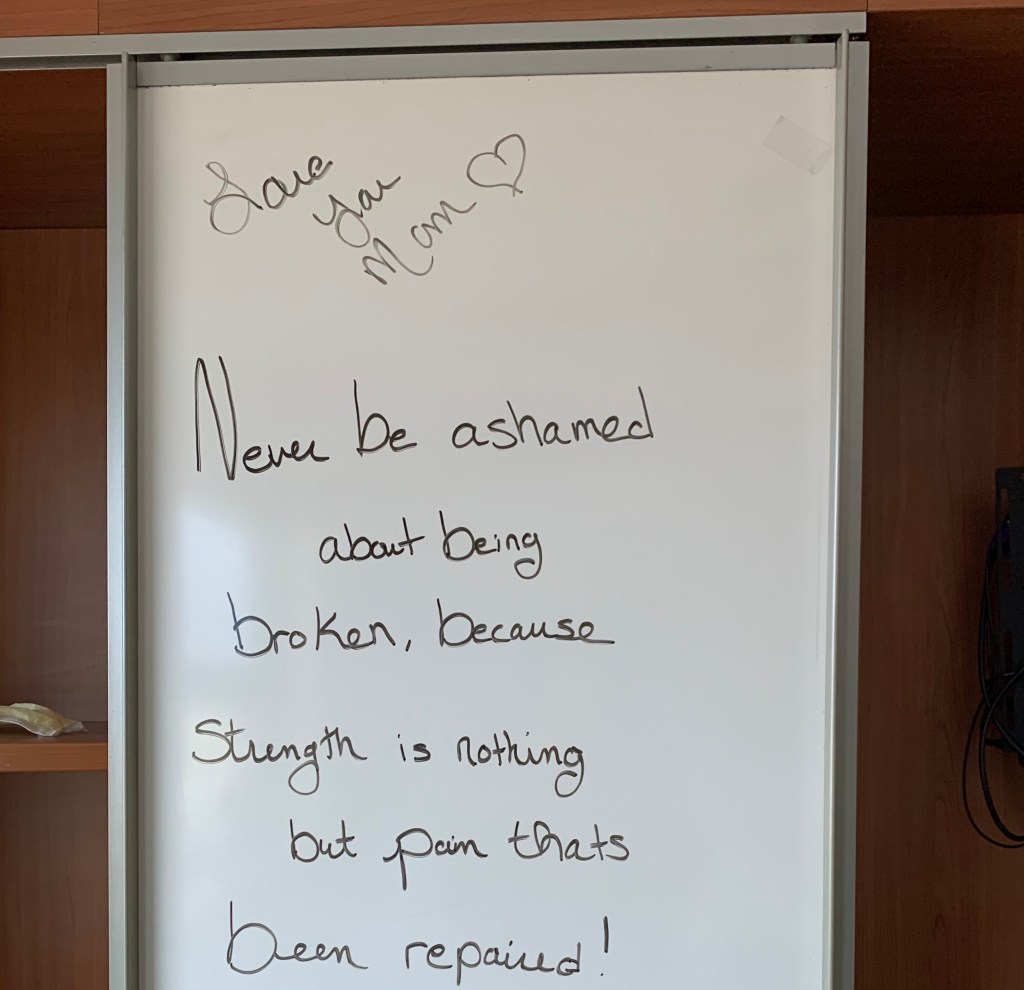 Love
you
Mom ♡
Never be ashamed
about being
broken, because
Strength is nothing
but pain thats
been repaired!